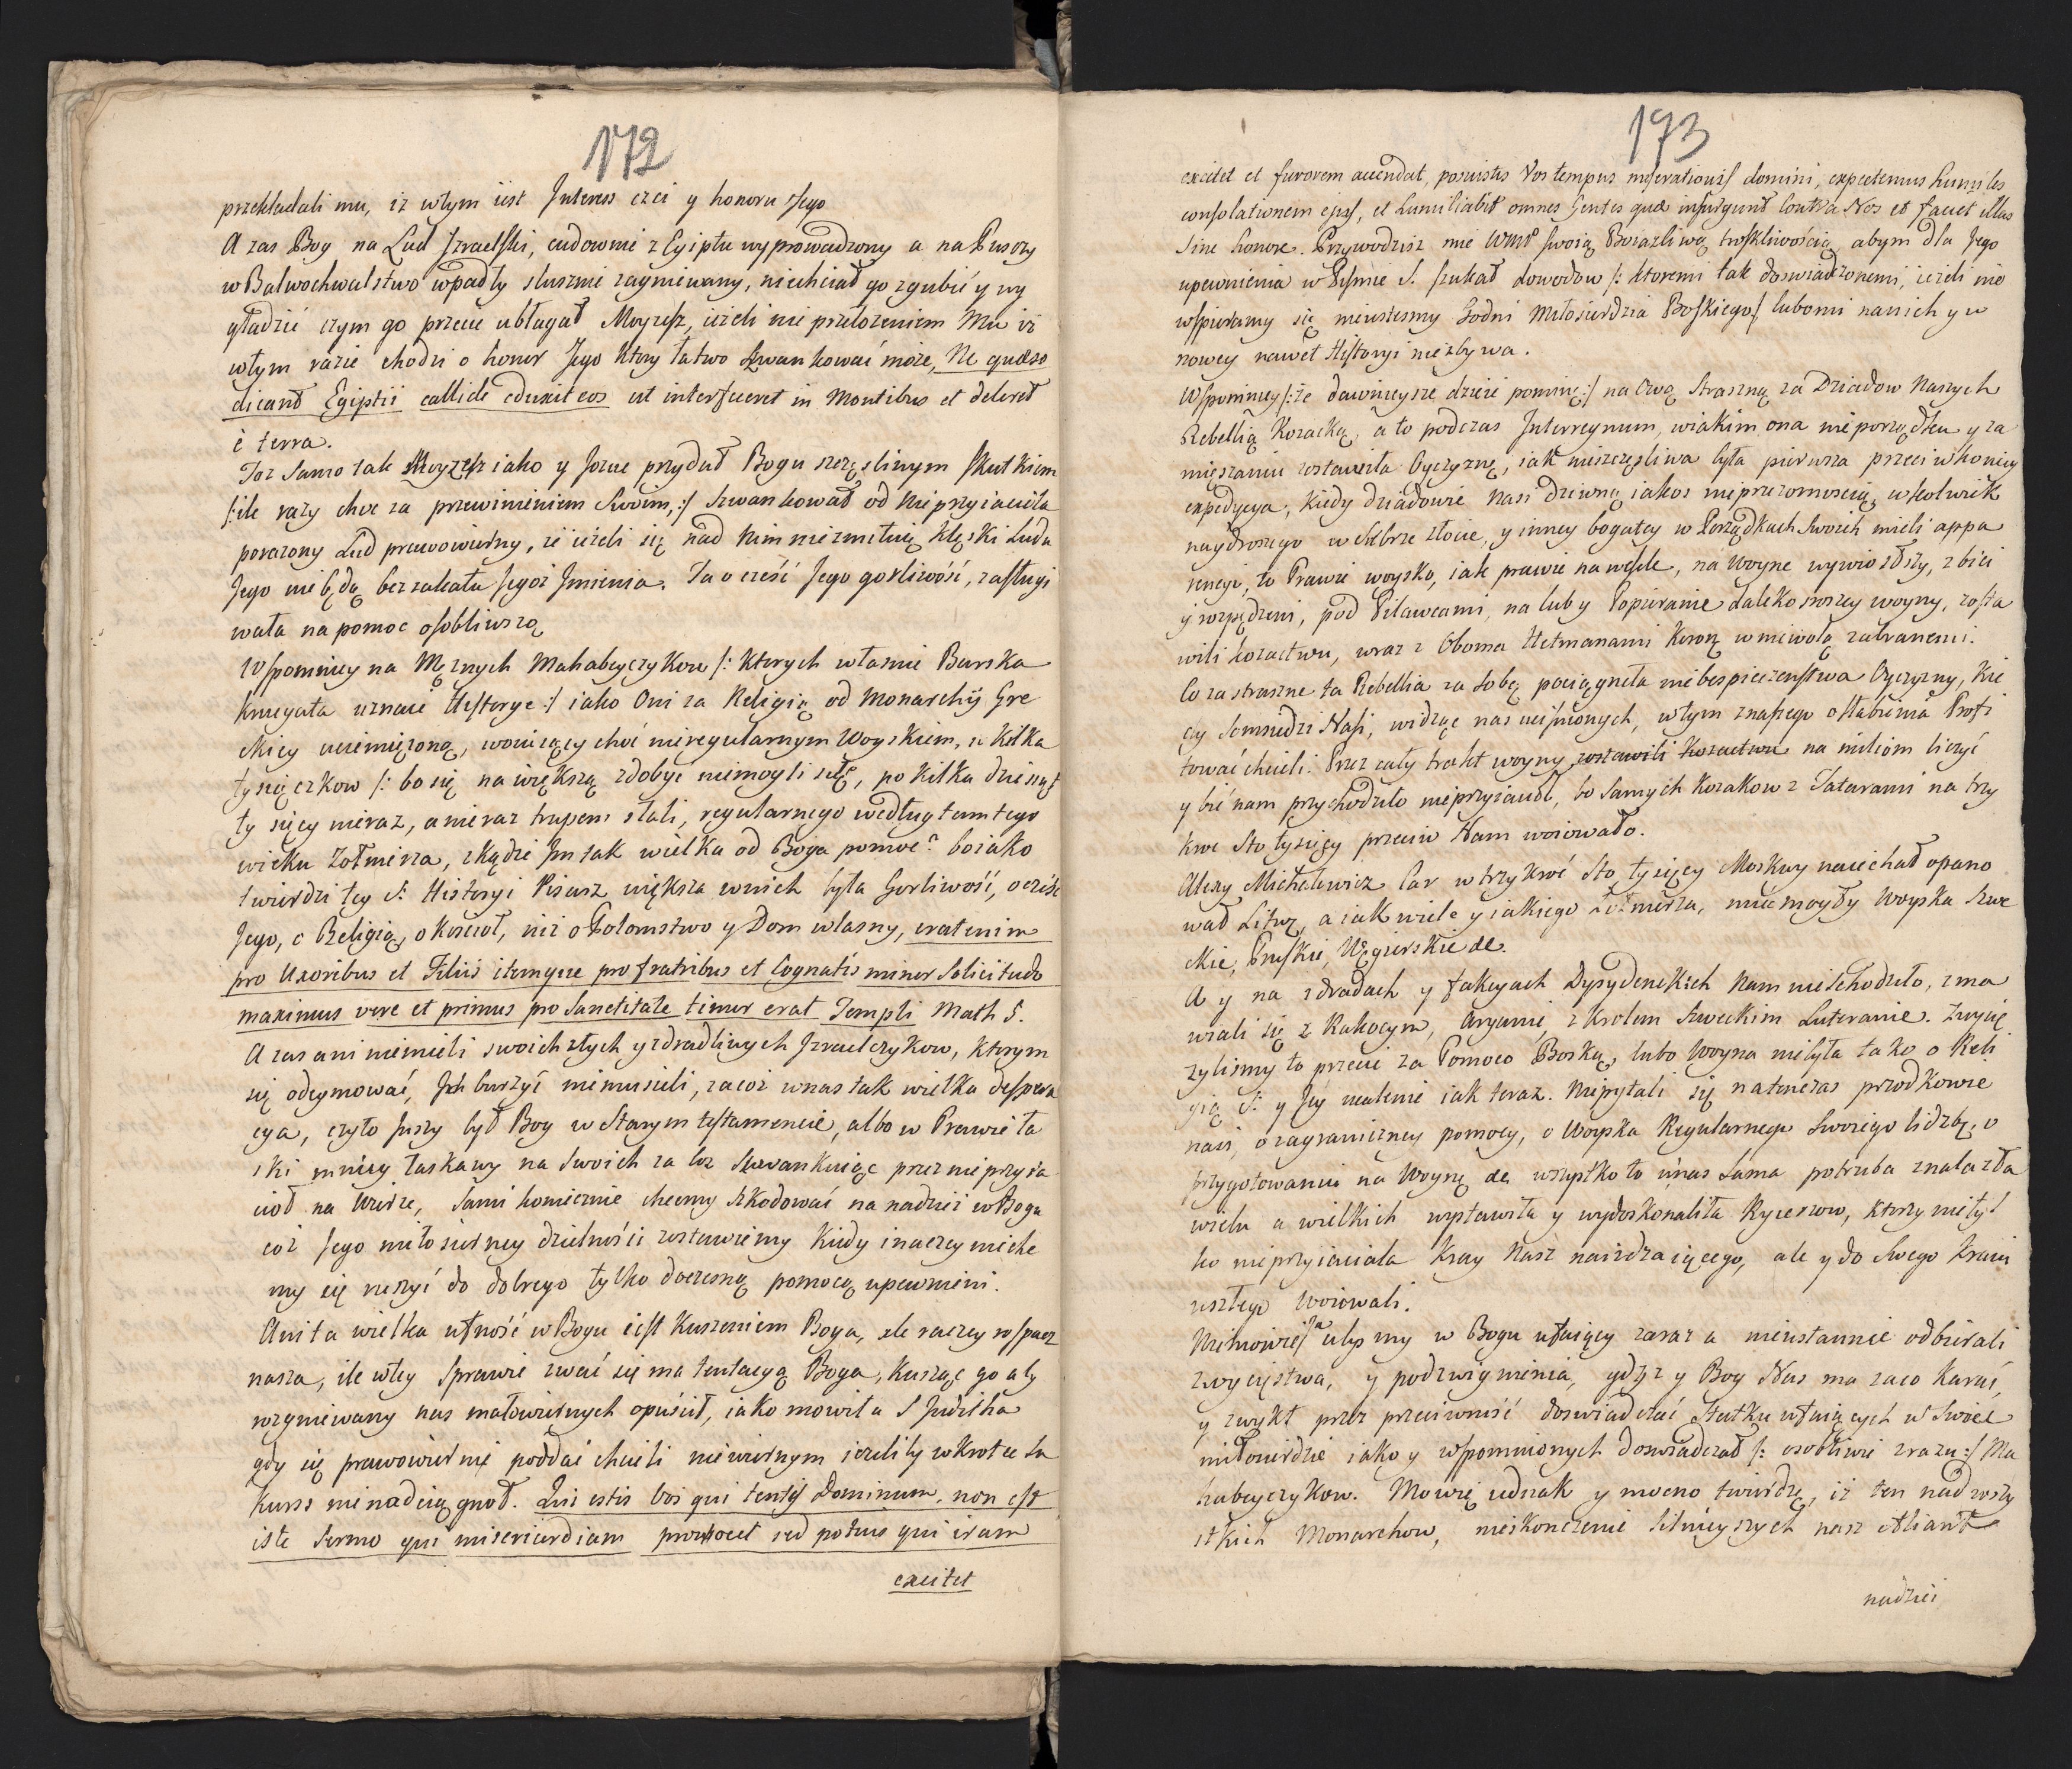 172
przekładali mu, iż wtym iest Interess czci y honoru Jego
A zas Bog na Lud Izraelski, cudownie z Egiptu wyprowadzony a na Puszczy
w Balwochwalstwo wpadły słusznie zagniewany, niechciał go zgubić y wy
gładzić czym go przecie ubłagał Moyzesz, ieżeli nie przełozeniem Mu iż
wtym razie chodzi o honor Jego ktory łatwo szwankować może, Ne quæso
dicant Egiptii callide eduxit eos ut interficeret in Montibus et deleret
è terra.
Toz Samo tak Moyzesz iako y Jozue przydał Bogu szczęsliwym skutkiem
/:ile razy choc za przewinieniem Swoim,:/ Szwankował od Nieprzyiaciela
porazony Lud prawowierny, iż ieżeli się nad Nim niezmiłuię klęski Ludu
Jego nie będą bez zakału Jegoż Jmienia. Ta o cześć Jego gorliwość, zasługi
wała na pomoc osobliwszą
Wspomniey na Mężnych Mahabeyczykow /: Ktorych własnie Barska
kniegata uznaie Historye :/ iako Oni za Religią od Monarchij Gre
ckiey uciemięzoną, woiuiący choć nieregularnym Woyskiem, z kilka
tysięczkow /: bo się na większą zdobyc niemogli siłę, po kilka dziesiąt
ty sięcy nieraz, a nieraz trupem słali, regularnego według tamtego
wieku Zołnierza, zkądze Jm tak wielka od Boga pomoc? bo iako
twierdzi tey S: Historyi Pisarz większa wnich była Gorliwość, o cześć
Jego, o Religią, o kościoł, niż o Potomstwo y Dom własny, erat enim
pro Uxoribus et Filiis itemque pro fratribus et Cognatis minor Solicitudo
maximus vere et primus pro Sanctitate timor erat Templi Math 5.
A zas ani niemieli swoich złych y zdradliwych Jzraelczykow, ktorym
się odeymować, Jch burzyć niemusieli, zacoż wnas tak wielka despera
cya, czyto Jnszy był Bog w Starym testamencie, albo w Prawie ła
ski mniey łaskawy na Swoich za toz Szwankuiąc przez nieprzyia
cioł na Wierze, Sami koniecznie chcemy Szkodować na nadziei w Bogu
coż Jego miłosierney dzielności zostawiemy kiedy inaczey nieche
my się ruszyć do dobrego tylko doczesną pomocą upewnieni.
Ani ta wielka ufność w Bogu iest Kuszeniem Boga, ale raczey rospacz
nasza, ile wtey Sprawie zwać się ma tentacyą Boga, Kusząc go aby
rozgniewany nas małowiernych opuścił, iako mowiła S Juditha
gdy się prawowiernie poddać chcieli niewiernym ieżeliby wkrotce Su
kurss nie nadciągnoł. Qui estis Vos qui tentatis Dominum, non est
iste Sermo qui misericordiam provocet sed potius qui iram
excitet
193
excitet et furorem accendat, posuistis Vos tempus miserationis domini, expectemus humiles
consolationem ejus, et humiliabit omnes Gentes quæ insurgunt Contra Nos et faciet illas
Sine honore. Przywodzisz mie swoią Bozazliwą troskliwością abym dla Jego
upewnienia w Pismie S. szukał dowodow /: ktoremi tak doswiadczonemi, ieżeli nie
wspieramy się nieiestesmy Godni Miłosierdzia Boskiego/ lubomi nanich y w
nowey nawet Historyi niezbywa.
Wspomniey /:że dawnieysze dzieie pominę:/ na Owę Straszną za Dziadow Naszych
Rebellią Kozacką, a to podczas Interregnum, wiakim ona nieporządku y za
mieszaniu zostawiła Oyczyznę, iak nieszczęsliwa była pierwsza przeciwko niey
expedycya, kiedy dziadowie nasi dziwną iakos nieprzezornoscią, cokolwiek
naydrozszego w Srebrze złocie, y inney bogatey w Porządkach Swoich mieli appa
rencyi, to Prawie woysko, iak prawie na wesele, na Woyne wywiozłszy, zbici
y rozpędzeni, pod Pilawcami, na luby Popieranie dalekosnszey woyny, zosta
wili kozactwu, wraz z Oboma Hetmanami Koron. w niewolą zabranemi.
Co za straszne ta Rebellia za Sobą pociągneła niebespieczenstwa Oyczyzny, kie
dy Somsiedzi Nasi, widząc nas ucisnionych, wtym znaszego osłabienia Profi
tować chcieli. Przez cały trakt woyny zostawili kozactwu na milion liczyć
y bić nam przychodziło nieprzyiaciół, bo Samych Kozakow z Tatarami na trzy
kroc Sto tysięcy przeciw Nam woiowało.
Alexy Michelewicz Car w trzykroć Sto tysięcy Moskwy naiechał opano
wał Litwę, a iak wiele y iakiego Zołnierza, niemogły Woyska Szwe
ckie, Pruskie, Węgierskie &c.
A y na zdradach y fakcyach Dyssydenckich Nam nieschodziło, zma
wiali się z Rakocym, Aryanie, z Krolem Szweckim Luteranie. Zwycię
zylismy to przecie za Pomoco Boską, lubo Woyna niebyła tako o Reli
gią S: y Jey ucalenie iak teraz. Niepytali się natenczas przodkowie
nasi, o zagraniczney pomocy, o Woyska Regularnego Swoiego liczbę, o
przygotowaniu na Woynę &c. wszystko to u nas Sama potrzeba znalazła
wielu a wielkich wystawiła y wydoskonaliła Rycerzow, ktorzy nietyl
ko nieprzyiaciela kray Nasz naieżdzaiącego, ale y do Swego kraiu
uszłego Woiowali.
Niemowię abysmy w Bogu ufaiący zaraz a nieustannie odbierali
zwycięstwa, y podzwignienia, gdyż y Bog Nas ma zaco Karać,
y zwykł przez przeciwność doswiadczać Statku ufaiących w Swoie
miłosierdzie iako y wspomnionych doswiadczał /: osobliwie zrazu :/ Ma
habeyczykow. Mowię iednak y mocno twierdzę, iż ten nad wszy
stkich Monarchow, nieskonczenie silnieyszych nasz Aliant
nadziei